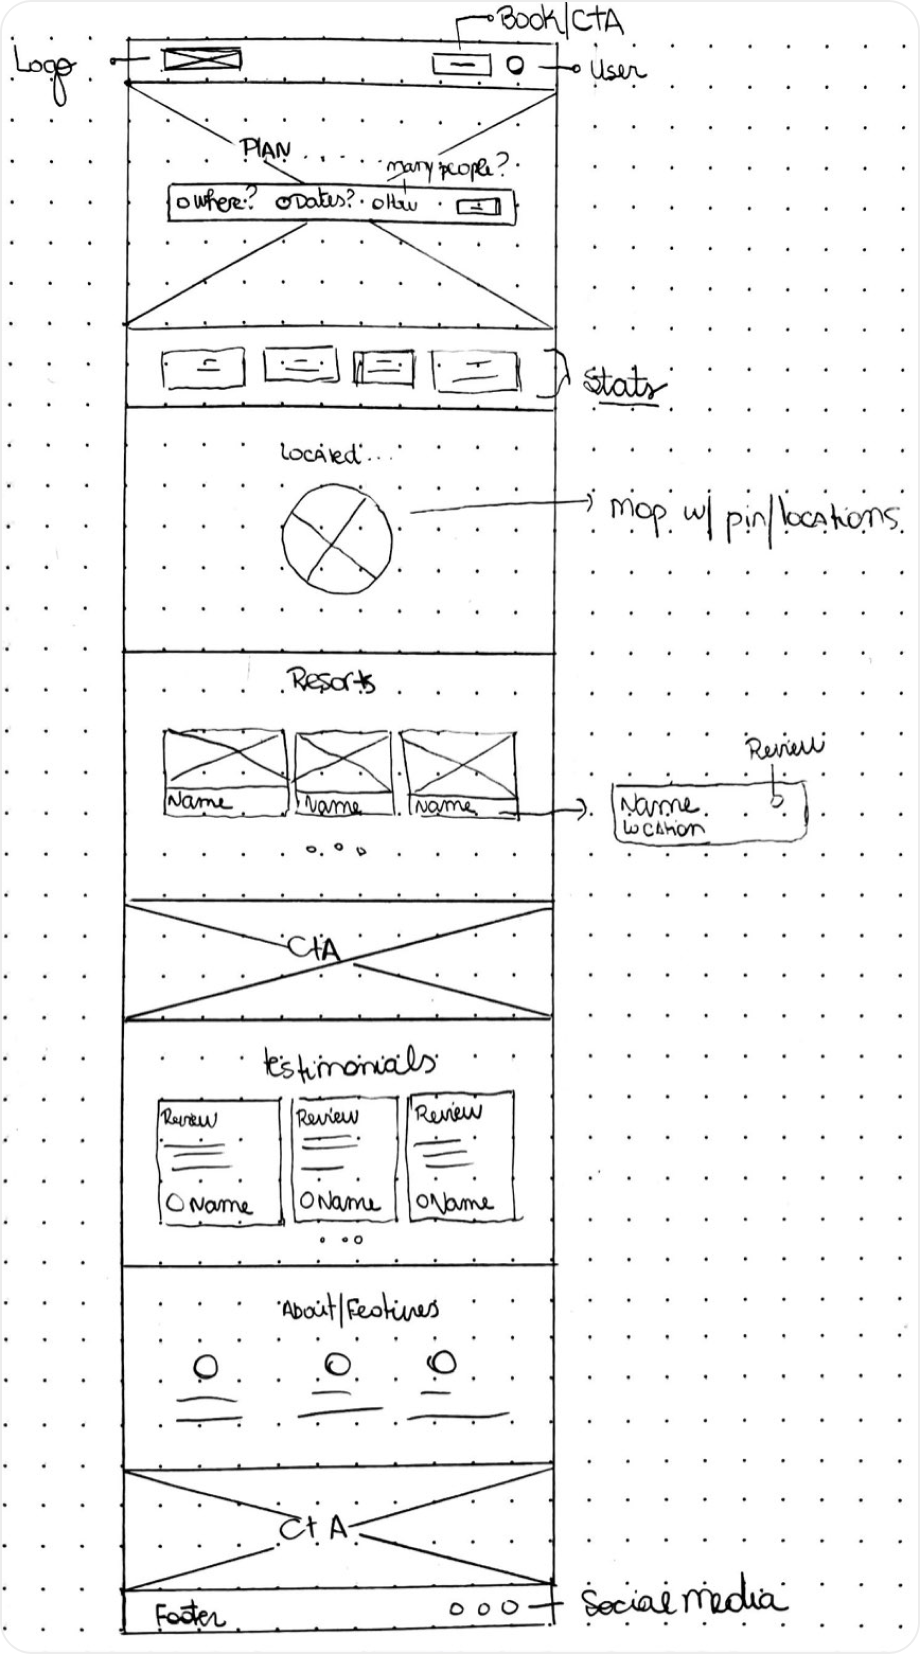 Book/CTA
Logo
User
PLAN . . . . .
many people?
Where? Dates? How
Stats
Located...
Map w/ pin/locations
Resorts
Review
Name Name Name
Name
Location
CTA
Testimonials
Review Review Review
Name Name Name
About/Features
CTA
Footer
Social media